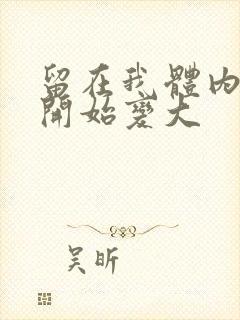 留在我體內
開始變大
吳昕